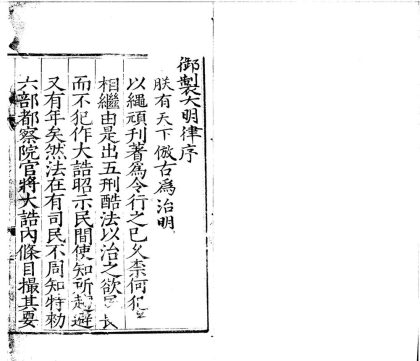 御製大明律序
朕有天下倣古爲治明
以繩頑刊著爲令行之已久柰何犯
相繼由是出五刑酷法以治之欲民
而不犯作大誥昭示民間使知所趍避
又有年矣然法在有司民不周知特勑
六部都察院官將大誥內條目撮其要